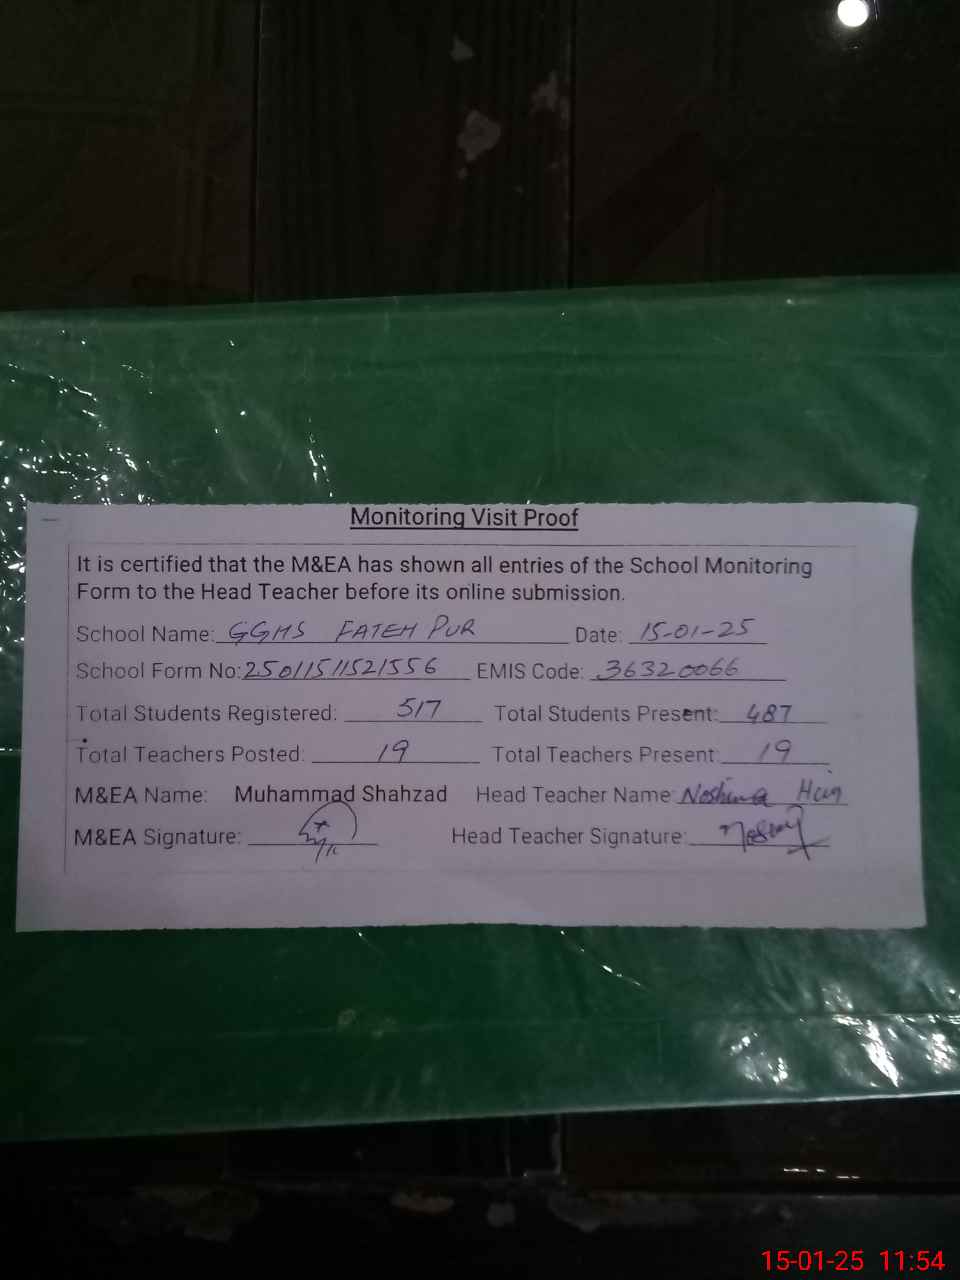 Monitoring Visit Proof
It is certified that the M&EA has shown all entries of the School Monitoring
Form to the Head Teacher before its online submission.
School Name: GGHS FATEH PUR Date: 15-01-25
School Form No: 25011511521556 EMIS Code: 36320066
Total Students Registered: 517 Total Students Present: 487
Total Teachers Posted: 19 Total Teachers Present: 19
M&EA Name: Muhammad Shahzad Head Teacher Name: Noshina
M&EA Signature: Head Teacher Signature:
15-01-25 11:54